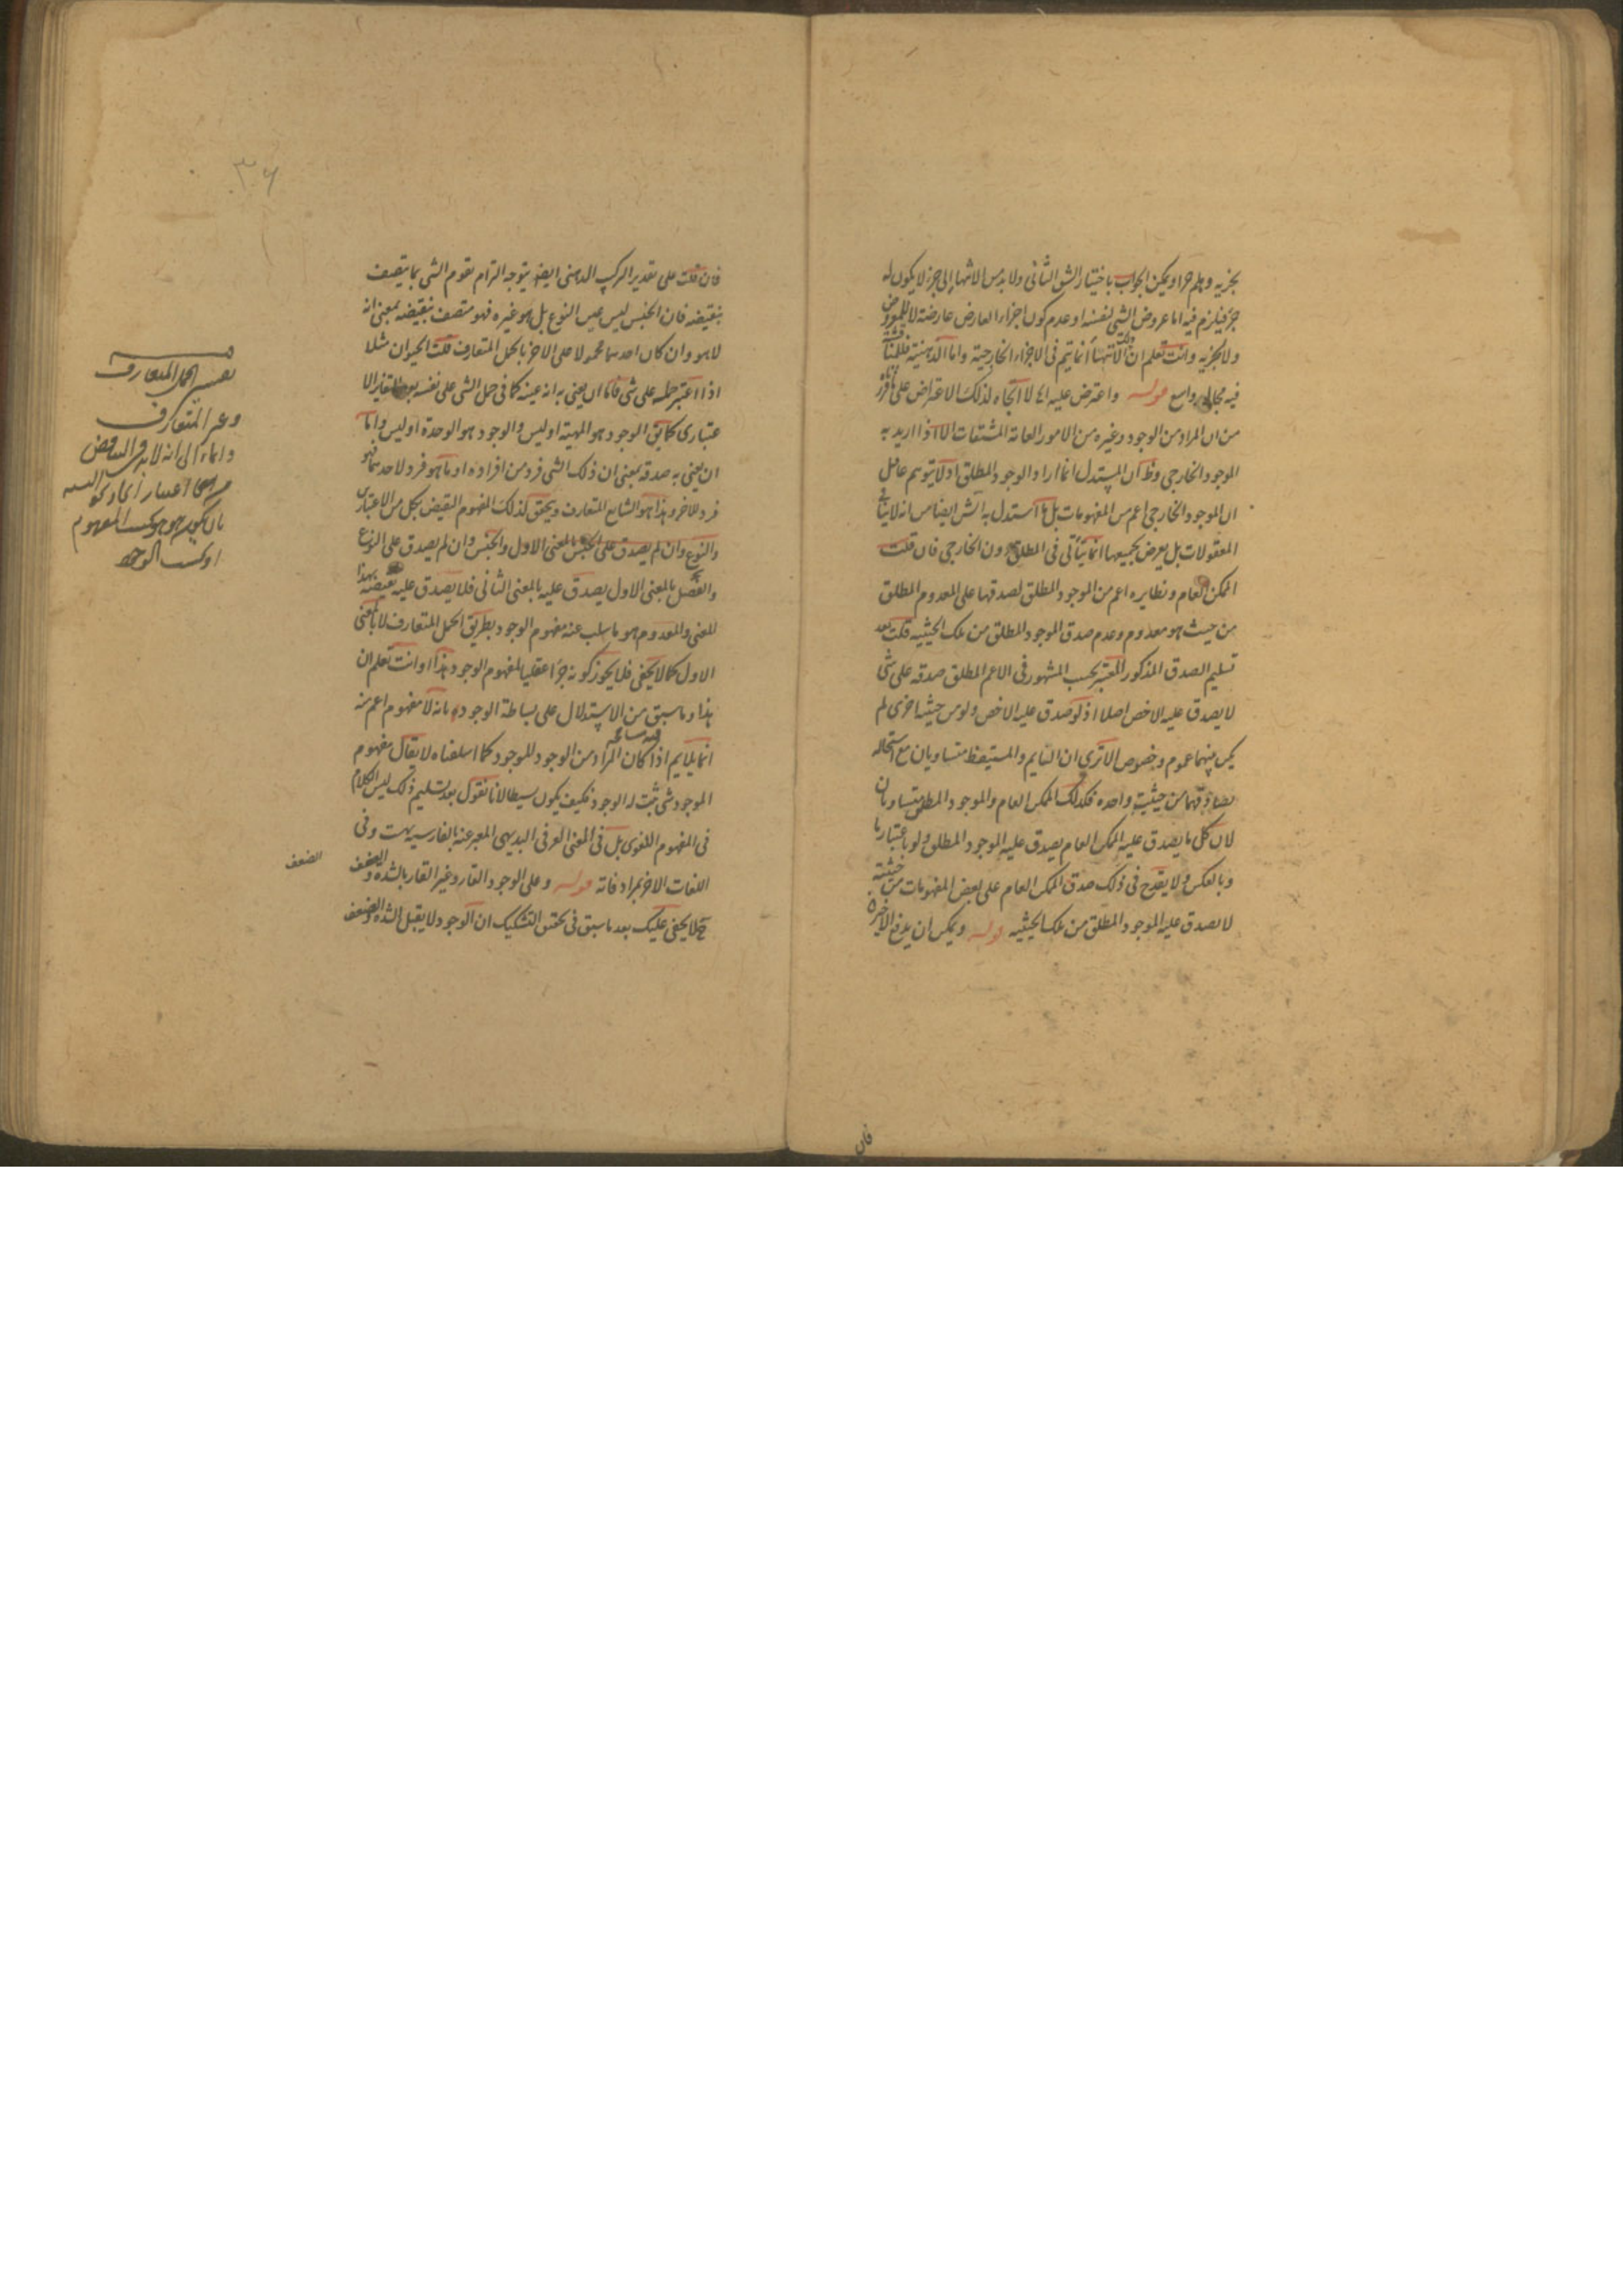 بجزيه وهلم جرا ويمكن الجواب باختيار الشق الثاني ولا بد من الانتهاء الى جزء لا يكون له
جزء فيلزم فيه اما عروض الشي لنفسه او عدم كون اجزاء العارض عارضة لا للمعروض
ولا لجزيه وانت تعلم ان الانتهاء انما يتم في الاجزاء الخارجية واما الذهنية فللمناقشة
فيه مجال واسع قوله واعترض عليه لا اتجاه لذلك الاعتراض على ما قرره
من ان المراد من الوجود وغيره من الامور العامة المشتقات الا اذا اريد به
الموجود الخارجي وظ ان المستدل انما اراد الوجود المطلق اذ لا يتوهم عاقل
ان الموجود الخارجي اعم من المفهومات بل ما استدل به الش ايضا من انه لا ينافي
المعقولات بل يعرض لجميعها انما يتأتى في المطلق دون الخارجي فان قلت
الممكن العام ونظايره اعم من الموجود المطلق لصدقها على المعدوم المطلق
من حيث هو معدوم وعدم صدق الموجود المطلق من تلك الحيثية قلت بعد
تسليم الصدق المذكور المعتبر بحسب المشهور في الاعم المطلق صدقه على شي
لا يصدق عليه الاخص اصلا اذ لو صدق عليه الاخص ولو من حيثية اخرى لم
يكن بينهما عموم وخصوص الا ترى ان النايم والمستيقظ متساويان مع استحالة
تصادقهما من حيثية واحدة فكذلك الممكن العام والموجود المطلق متساويان
لان كل ما يصدق عليه الممكن العام يصدق عليه الموجود المطلق ولو باعتبار ما
وبالعكس ولا يقدح في ذلك صدق الممكن العام على بعض المفهومات من حيثية
لا يصدق عليه الموجود المطلق من تلك الحيثية قوله ويمكن ان يدفع الاخيرة
فان
٣٦
فان قلت على تقدير التركيب الذهني ايضا يتوجه الزام تقوم الشي بما يتصف
بنقيضه فان الجنس ليس عين النوع بل هو غيره فهو متصف بنقيضه بمعنى انه
لا هو وان كان احدهما محمولا على الاخر بالحمل المتعارف قلت الحيوان مثلا
اذا اعتبر حمله على شي فاما ان يعنى به انه عينه كما في حمل الشي على نفسه بعد تغاير الا
عتباري كما يق الوجود هو المهية او ليس والوجود هو الوحدة او ليس واما
ان يعنى به صدقه بمعنى ان ذلك الشي فرد من افراده او ما هو فرد لاحدهما فهو
فرد للاخر وهذا هو الشايع المتعارف ويحقق كذلك لمفهوم النقيض بكل من الاعتبارين
والنوع وان لم يصدق على الجنس بالمعنى الاول والجنس وان لم يصدق على النوع
والفصل بالمعنى الاول يصدق عليه بالمعنى الثاني فلا يصدق عليه نقيضه بهذا
المعنى والمعدوم هو ما سلب عنه مفهوم الوجود بطريق الحمل المتعارف لا بالمعنى
الاول كما لا يخفى فلا يجوز كونه جزءا عقليا لمفهوم الوجود هذا وانت تعلم ان
هذا وما سبق من الاستدلال على بساطة الوجود بانه لا مفهوم اعم منه
انما يلايم اذا كان المراد من الوجود الموجود كما اسلفناه لا يقال مفهوم
الموجود شي ثبت له الوجود فكيف يكون بسيطا لانا نقول بعد تسليم ذلك ليس الكلام
في المفهوم اللغوي بل في المعنى العرفي البديهي المعبر عنه بالفارسية بهست وفي
اللغات الاخر بمرادفاته قوله وعلى الوجود القار وغير القار بالشدة والضعف
لا يخفى عليك بعد ما سبق في تحقق التشكيك ان الوجود لا يقبل الشدة والضعف
الضعف
تفسير الحمل المتعارف
وغير المتعارف
وايماء الى انه لابد في التناقض
من اعتبار اتحاد نحو النسبة
بان يكون هو هو بحسب المفهوم
او بحسب الوجود